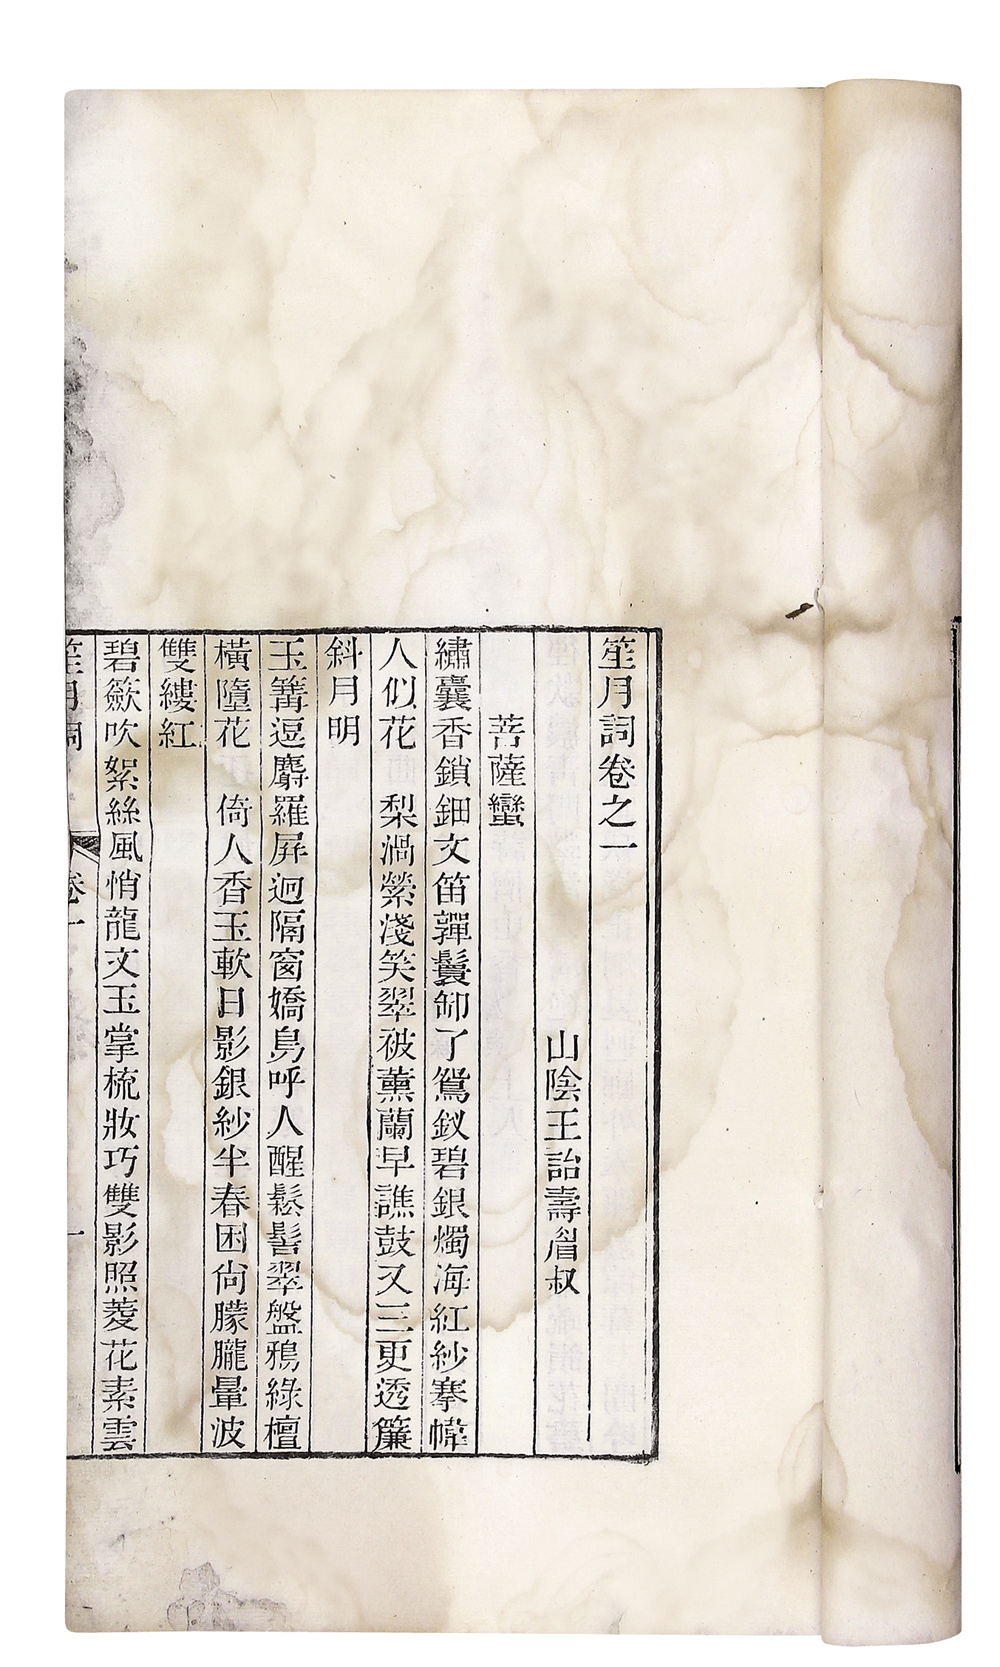 笙月詞卷之一
山陰王詒壽眉叔
菩薩蠻
繡囊香鎖鈿文笛嚲鬟卸了鴛釵碧銀燭海紅紗搴幃
人似花　梨渦縈淺笑翠被薰蘭早譙鼓又三更透簾
斜月明
玉篝逗麝羅屏迥隔窗嬌鳥呼人醒鬆髻翠盤鴉綠檀
橫墮花　倚人香玉軟日影銀紗半春困尙朦朧暈波
雙縷紅
碧簌吹絮絲風悄龍文玉掌梳妝巧雙影照菱花素雲
笙月詞　卷一　一